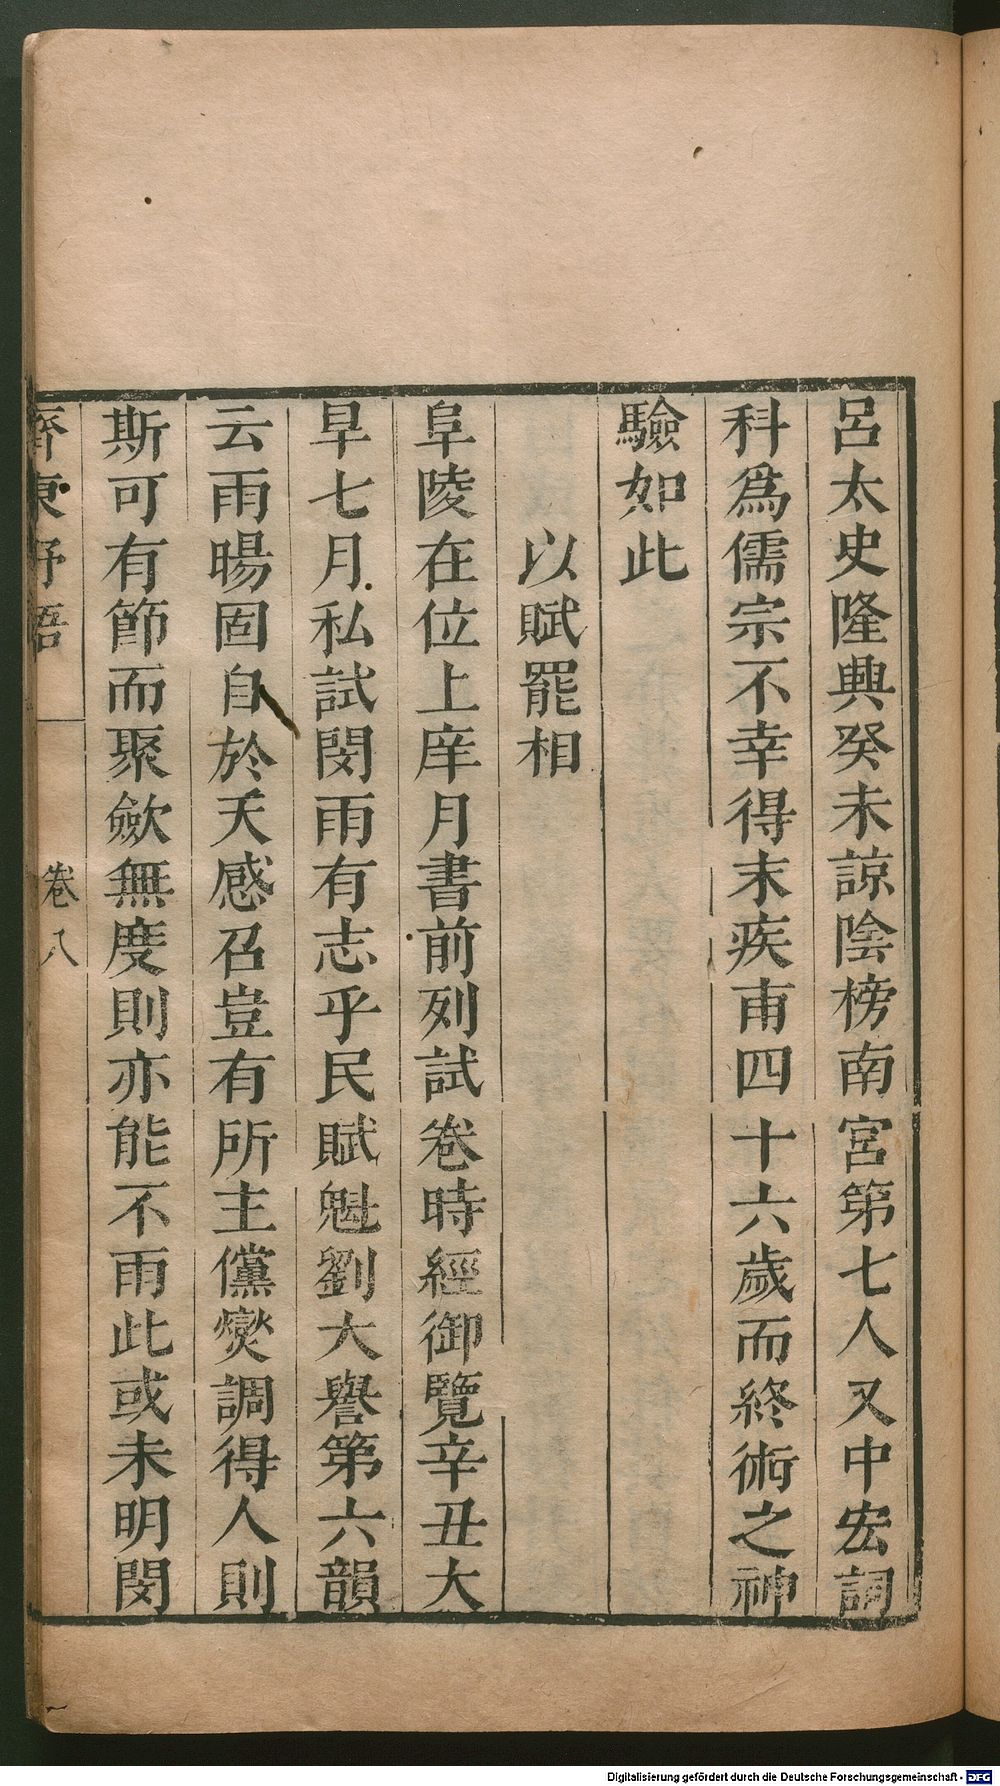 呂太史隆興癸未諒陰榜南宮第七人又中宏詞
科爲儒宗不幸得末疾甫四十六歲而終術之神
驗如此
以賦罷相
阜陵在位上庠月書前列試卷時經御覽辛丑大
旱七月私試閔雨有志乎民賦魁劉大譽第六韻
云雨暘固自於天感召豈有所主儻燮調得人則
斯可有節而聚歛無度則亦能不雨此或未明閔
齊東野語
卷八
Digitalisierung gefördert durch die Deutsche Forschungsgemeinschaft - DFG